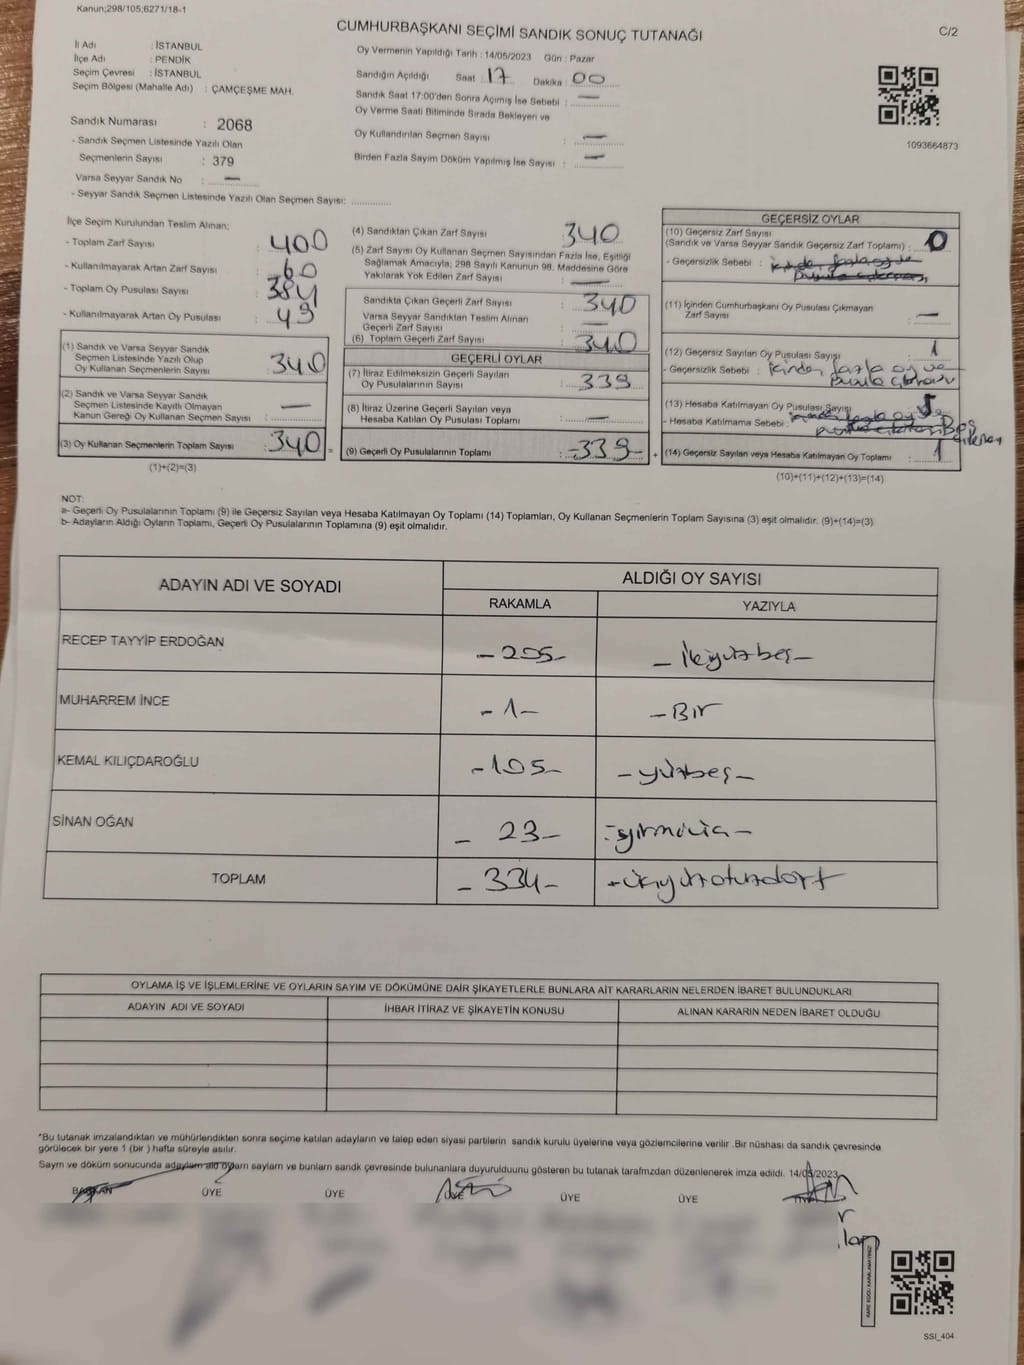 Kanun;298/105;6271/18-1
CUMHURBAŞKANI SEÇİMİ SANDIK SONUÇ TUTANAĞI
C/2
İl Adı : İSTANBUL
İlçe Adı : PENDİK
Seçim Çevresi : İSTANBUL
Seçim Bölgesi (Mahalle Adı) : ÇAMÇEŞME MAH.
Sandık Numarası : 2068
- Sandık Seçmen Listesinde Yazılı Olan
Seçmenlerin Sayısı : 379
Varsa Seyyar Sandık No : —
- Seyyar Sandık Seçmen Listesinde Yazılı Olan Seçmen Sayısı: ............
Oy Vermenin Yapıldığı Tarih : 14/05/2023 Gün : Pazar
Sandığın Açıldığı Saat : 17 Dakika : 00
Sandık Saat 17:00'den Sonra Açımış İse Sebebi : —
Oy Verme Saati Bitiminde Sırada Bekleyen ve
Oy Kullandırılan Seçmen Sayısı : —
Birden Fazla Sayım Döküm Yapılmış İse Sayısı : —
1093664873
İlçe Seçim Kurulundan Teslim Alınan;
- Toplam Zarf Sayısı : 400
- Kullanılmayarak Artan Zarf Sayısı : 60
- Toplam Oy Pusulası Sayısı : 384
- Kullanılmayarak Artan Oy Pusulası : 49
(1) Sandık ve Varsa Seyyar Sandık
Seçmen Listesinde Yazılı Olup
Oy Kullanan Seçmenlerin Sayısı : 340
(2) Sandık ve Varsa Seyyar Sandık
Seçmen Listesinde Kayıtlı Olmayan
Kanun Gereği Oy Kullanan Seçmen Sayısı : —
(3) Oy Kullanan Seçmenlerin Toplam Sayısı : 340 =
(1)+(2)=(3)
(4) Sandıktan Çıkan Zarf Sayısı : 340
(5) Zarf Sayısı Oy Kullanan Seçmen Sayısından Fazla İse, Eşitliği
Sağlamak Amacıyla; 298 Sayılı Kanunun 98. Maddesine Göre
Yakılarak Yok Edilen Zarf Sayısı : —
Sandıkta Çıkan Geçerli Zarf Sayısı : 340
Varsa Seyyar Sandıktan Teslim Alınan
Geçerli Zarf Sayısı : —
(6) Toplam Geçerli Zarf Sayısı : 340
GEÇERLİ OYLAR
(7) İtiraz Edilmeksizin Geçerli Sayılan
Oy Pusulalarının Sayısı : 339
(8) İtiraz Üzerine Geçerli Sayılan veya
Hesaba Katılan Oy Pusulası Toplamı : —
(9) Geçerli Oy Pusulalarının Toplamı : -339- +
GEÇERSİZ OYLAR
(10) Geçersiz Zarf Sayısı
(Sandık ve Varsa Seyyar Sandık Geçersiz Zarf Toplamı) : 0
- Geçersizlik Sebebi :
(11) İçinden Cumhurbaşkanı Oy Pusulası Çıkmayan
Zarf Sayısı : —
(12) Geçersiz Sayılan Oy Pusulası Sayısı : 1
- Geçersizlik Sebebi : İçinden fazla oy ve
(13) Hesaba Katılmayan Oy Pusulası Sayısı
- Hesaba Katılmama Sebebi :
(14) Geçersiz Sayılan veya Hesaba Katılmayan Oy Toplamı : 1
(10)+(11)+(12)+(13)=(14)
NOT:
a- Geçerli Oy Pusulalarının Toplamı (9) ile Geçersiz Sayılan veya Hesaba Katılmayan Oy Toplamı (14) Toplamları, Oy Kullanan Seçmenlerin Toplam Sayısına (3) eşit olmalıdır. (9)+(14)=(3)
b- Adayların Aldığı Oyların Toplamı, Geçerli Oy Pusulalarının Toplamına (9) eşit olmalıdır.
ADAYIN ADI VE SOYADI
ALDIĞI OY SAYISI
RAKAMLA YAZIYLA
RECEP TAYYİP ERDOĞAN - 205 - - İkiyüzbeş -
MUHARREM İNCE - 1 - - Bir
KEMAL KILIÇDAROĞLU - 105 - - yüzbeş -
SİNAN OĞAN - 23 - - yirmiüç -
TOPLAM - 334 - - üçyüzotuzdört
OYLAMA İŞ VE İŞLEMLERİNE VE OYLARIN SAYIM VE DÖKÜMÜNE DAİR ŞİKAYETLERLE BUNLARA AİT KARARLARIN NELERDEN İBARET BULUNDUKLARI
ADAYIN ADI VE SOYADI İHBAR İTİRAZ VE ŞİKAYETİN KONUSU ALINAN KARARIN NEDEN İBARET OLDUĞU
*Bu tutanak imzalandıktan ve mühürlendikten sonra seçime katılan adayların ve talep eden siyasi partilerin sandık kurulu üyelerine veya gözlemcilerine verilir .Bir nüshası da sandık çevresinde
görülecek bir yere 1 (bir ) hafta süreyle asılır.
Sayım ve döküm sonucunda adayların aldığı oyların sayıları ve bunların sandık çevresinde bulunanlara duyurulduunu gösteren bu tutanak tarafımzdan düzenlenerek imza edildi. 14/05/2023
BAŞKAN ÜYE ÜYE ÜYE ÜYE ÜYE
SSI_404